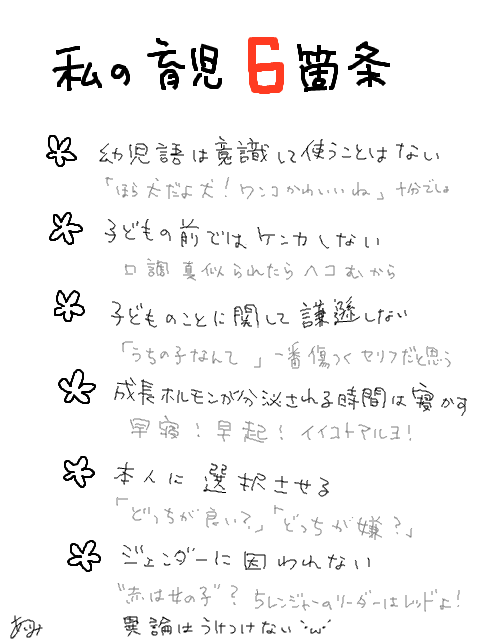 私の育児6箇条
幼児語は意識して使うことはない
「ほら犬だよ犬！ワンコかわいいね」十分でしょ
子どもの前ではケンカしない
口調真似られたらヘコむから
子どものことに関して謙遜しない
「うちの子なんて」一番傷つくセリフだと思う
成長ホルモンが分泌される時間は寝かす
早寝！早起！イイコトアルヨ！
本人に選択させる
「どっちが良い？」「どっちが嫌？」
ジェンダーに囚われない
"赤は女の子"？5レンジャーのリーダーはレッドよ！
異論はうけつけない˙ω˙
あゆみ